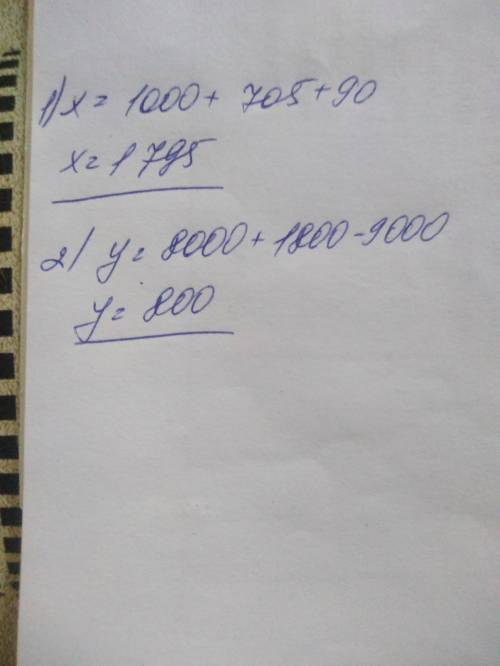 1) x = 1000 + 705 + 90
x = 1 795
2) y = 8000 + 1800 - 9000
y = 800